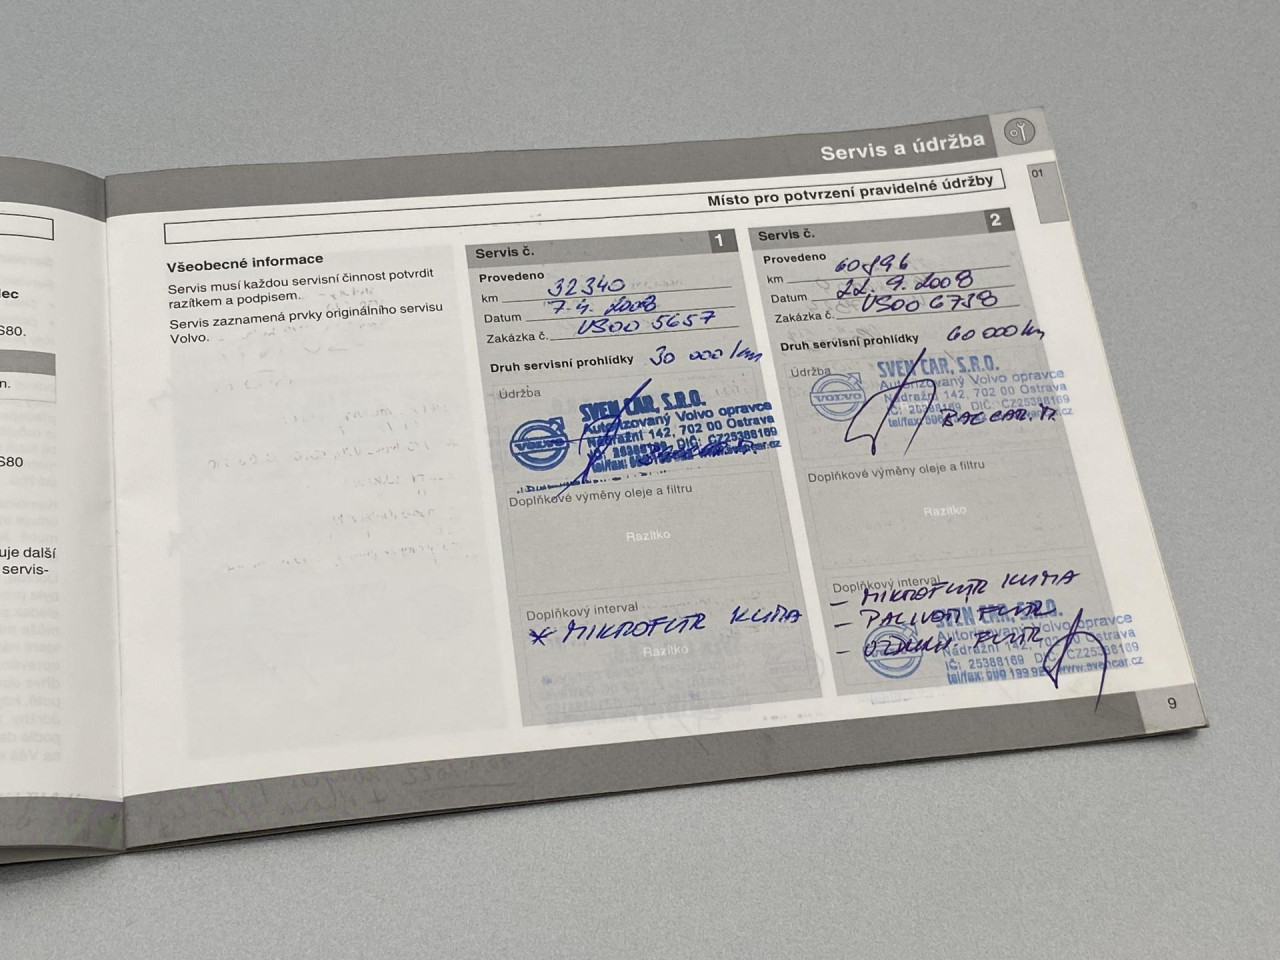 Servis a údržba
01
Místo pro potvrzení pravidelné údržby
lec
S80.
n.
S80
uje další
servis-
Všeobecné informace
Servis musí každou servisní činnost potvrdit
razítkem a podpisem.
Servis zaznamená prvky originálního servisu
Volvo.
Servis č. 1
Provedeno
km 32340
Datum 7.4. 2008
Zakázka č. US00 5657
Druh servisní prohlídky 30 000 km
Údržba
VOLVO
SVEN CAR, S.R.O.
Autorizovaný Volvo opravce
Nádražní 142, 702 00 Ostrava
IČ: 25388169, DIČ: CZ25388169
tel/fax:
Doplňkové výměny oleje a filtru
Razítko
Doplňkový interval
* MIKROFILTR KLIMA
Razítko
Servis č. 2
Provedeno
km 60896
Datum 22. 9. 2008
Zakázka č. US00 6738
Druh servisní prohlídky 60 000 km
Údržba
VOLVO
SVEN CAR, S.R.O.
Autorizovaný Volvo opravce
Nádražní 142, 702 00 Ostrava
IČ: 25388169 DIČ: CZ25388169
tel/fax:
Doplňkové výměny oleje a filtru
Razítko
Doplňkový interval
- MIKROFILTR KLIMA
- PALIVOVÝ FILTR
- VZDUCH. FILTR
SVEN CAR, S.R.O.
Autorizovaný Volvo opravce
Nádražní 142, 702 00 Ostrava
IČ: 25388169 DIČ: CZ25388169
tel/fax: www.svencar.cz
9